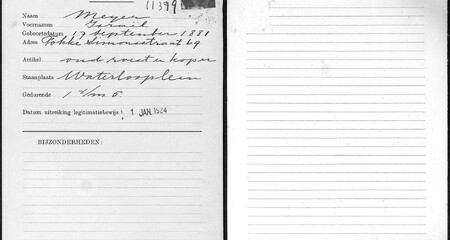 11399
Naam Meyer
Voornaam Israil
Geboortedatum 17 September 1881
Adres Fokke Simonsstraat 69
Artikel oud roest en koper
Staanplaats Waterlooplein
Gedurende 1 t/m 5
Datum uitreiking legitimatiebewijs: 1 JAN. 1924
BIJZONDERHEDEN: